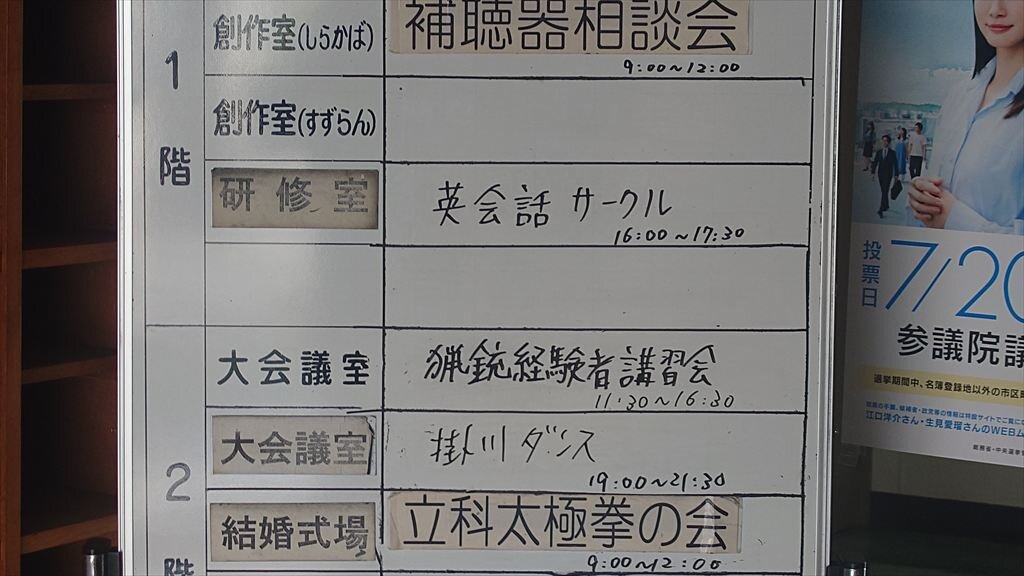 1階
創作室(しらかば)
補聴器相談会
9:00~12:00
創作室(すずらん)
研修室
英会話 サークル
16:00~17:30
2階
大会議室
猟銃経験者講習会
11:30~16:30
大会議室
掛川ダンス
19:00~21:30
結婚式場
立科太極拳の会
9:00~12:00
投票日
7/20
参議院議
選挙期間中、名簿登録地以外の市区
江口洋介さん・生見愛瑠さんのWEB
総務省・中央選挙